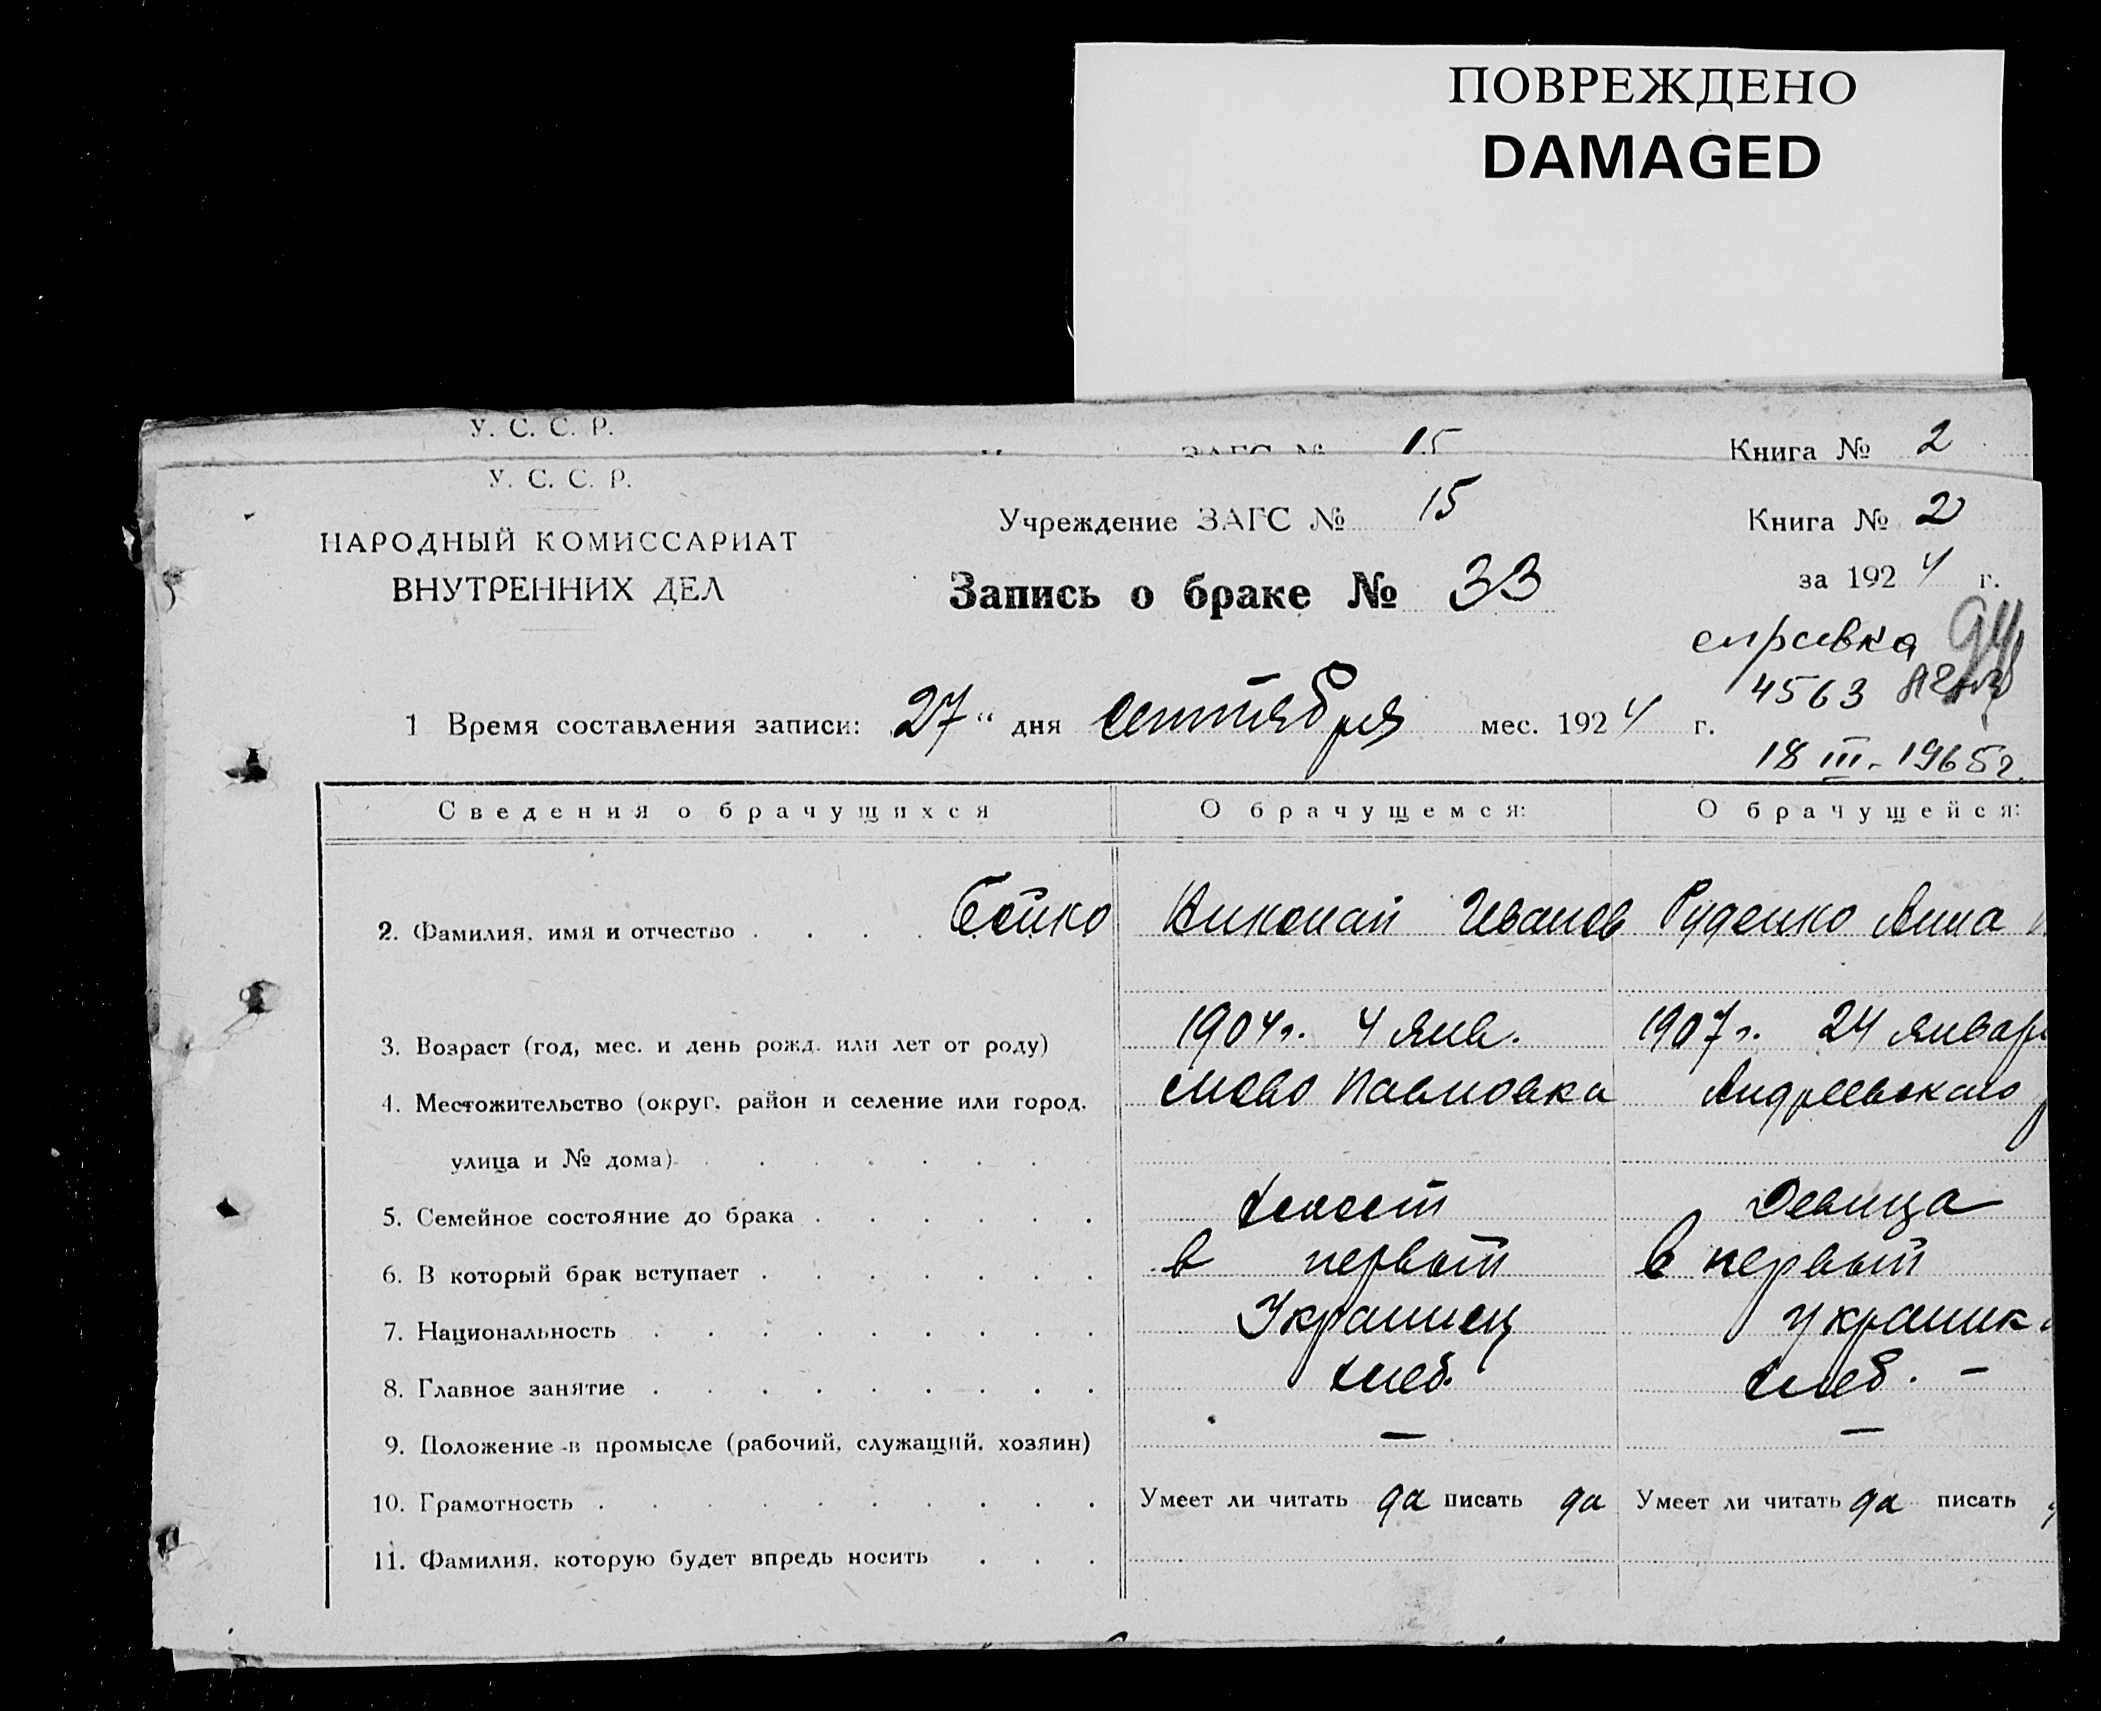 ПОВРЕЖДЕНО
DAMAGED
У. С. С. Р.
15
Книга № 2
У. С. С. Р.
НАРОДНЫЙ КОМИССАРИАТ
ВНУТРЕННИХ ДЕЛ
Учреждение ЗАГС № 15
Книга № 2
за 1924 г.
Запись о браке № 33
справка 94
4563
18 III - 1965 г.
1 Время составления записи: 27" дня сентября мес. 1924 г.
Сведения о брачущихся О брачущемся: О брачущейся:
2. Фамилия, имя и отчество . . . . Бойко Николай Иванов Руденко Анна
3. Возраст (год, мес. и день рожд. или лет от роду) 1904 г. 4 янв. 1907 г. 24 январ
4. Местожительство (округ, район и селение или город, Павловка Андреевского
улица и № дома) . . . . . . . .
5. Семейное состояние до брака . . . . . . Холост Девица
6. В который брак вступает . . . . . . . в первый в первый
7. Национальность . . . . . . . . . Украинец украинк
8. Главное занятие . . . . . . . . . хлеб. хлеб. –
9. Положение в промысле (рабочий, служащий, хозяин) — —
10. Грамотность . . . . . . . . . . Умеет ли читать да писать да Умеет ли читать да писать
11. Фамилия, которую будет впредь носить . . .